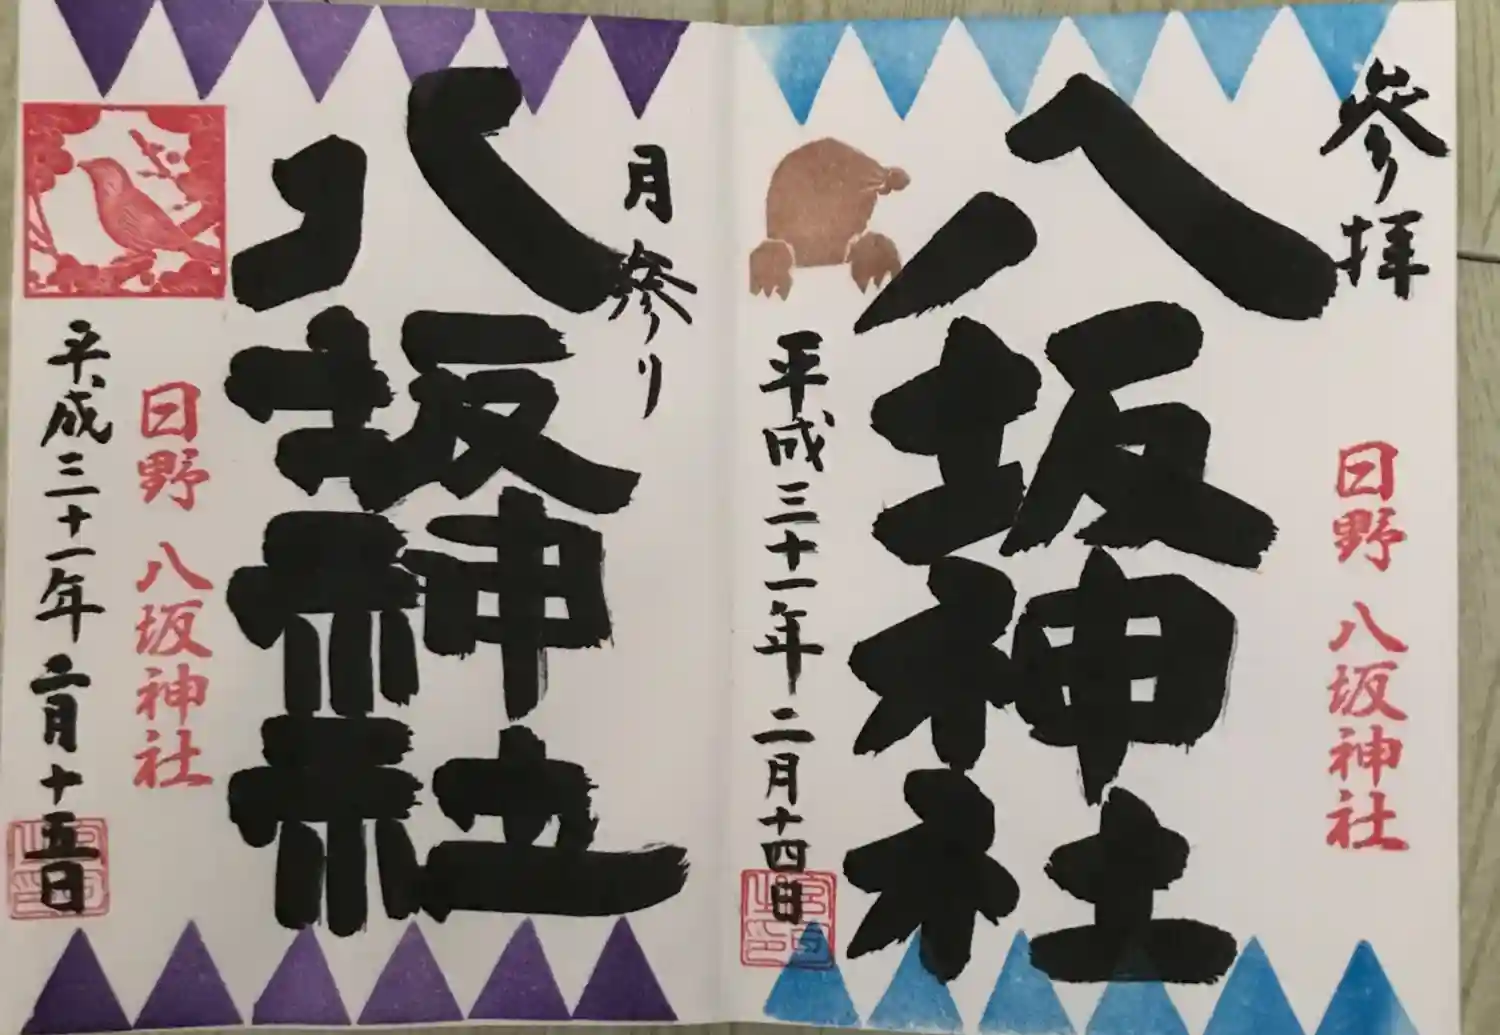 参拝
日野 八坂神社
八坂神社
平成三十一年 二月十四日
月参り
八坂神社
日野 八坂神社
平成三十一年 二月十五日